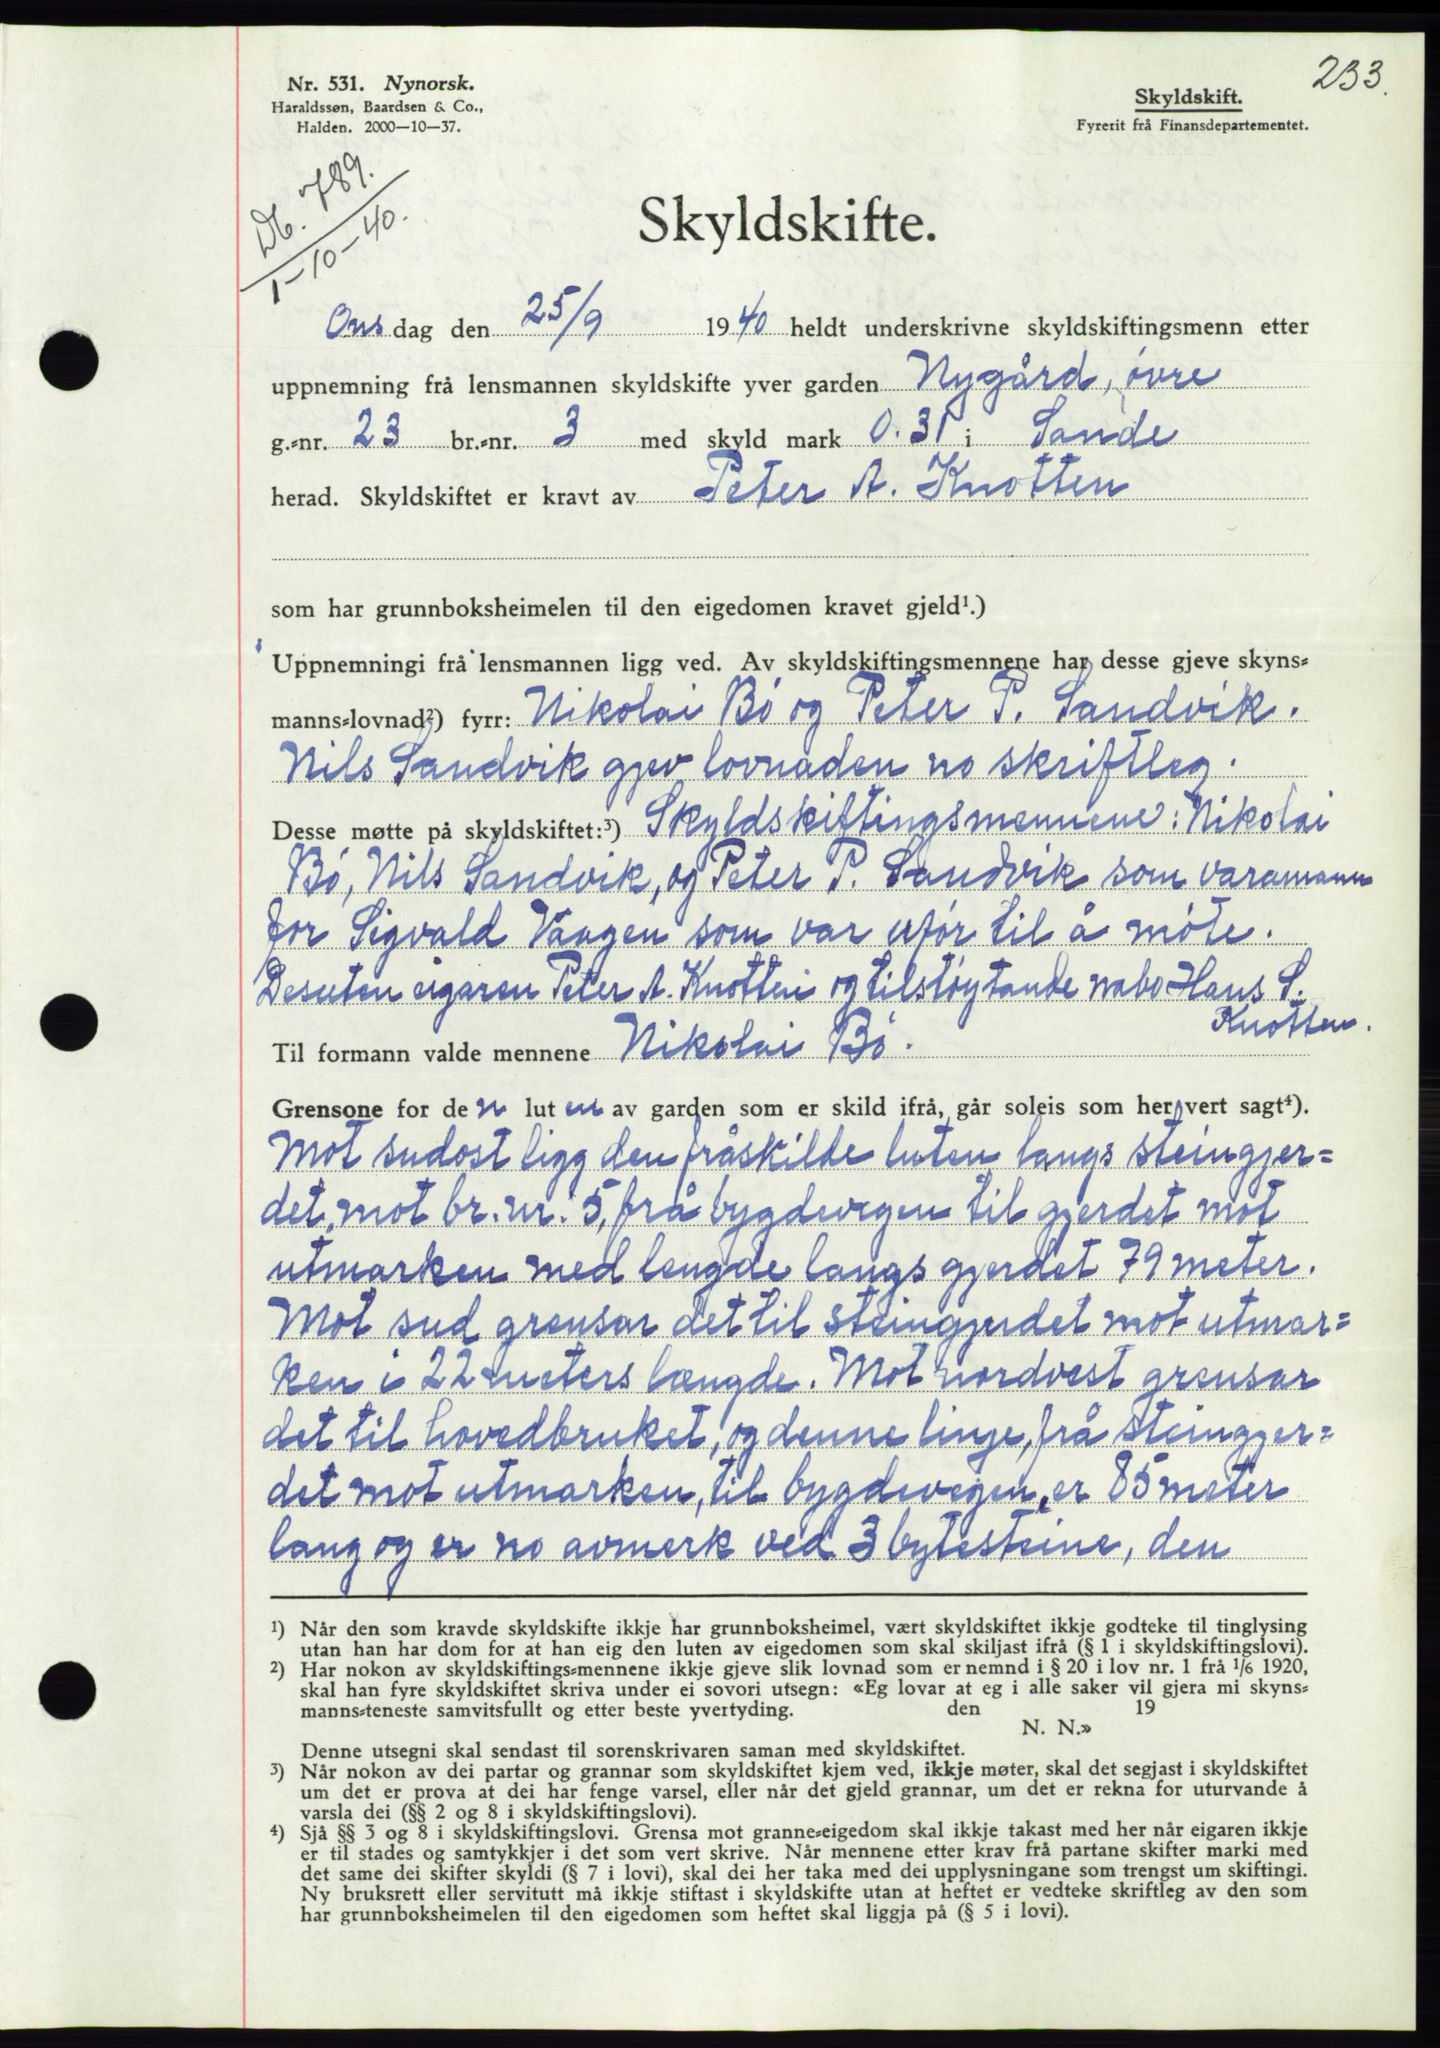 233.
Nr. 531. Nynorsk.
Haraldssøn, Baardsen & Co.,
Halden. 2000—10—37.
Skyldskift.
Fyrerit frå Finansdepartementet.
Db. 789.
1-10-40.
Skyldskifte.
Onsdag den 25/9 1940 heldt underskrivne skyldskiftingsmenn etter
uppnemning frå lensmannen skyldskifte yver garden Nygård, øvre
g.-nr. 23 br.-nr. 3 med skyld mark 0.31 i Sande
herad. Skyldskiftet er kravt av Peter A. Knotten
som har grunnboksheimelen til den eigedomen kravet gjeld¹.)
Uppnemningi frå lensmannen ligg ved. Av skyldskiftingsmennene har desse gjeve skyns-
manns-lovnad²) fyrr: Nikolai Bó og Peter P. Sandvik.
Nils Sandvik gjev lovnaden no skriftleg.
Desse møtte på skyldskiftet:³) Skyldskiftingsmennene: Nikolai
Bó, Nils Sandvik, og Peter P. Sandvik som varamann
for Sigvald Vaagen som var ufór til å móte.
Desuten eigaren Peter A. Knotten og tilstóytande nabo Hans S.
Knotten.
Til formann valde mennene Nikolai Bó.
Grensone for den luten av garden som er skild ifrå, går soleis som her vert sagt⁴).
Mot sudost ligg den fråskilde luten langs steingjer=
det, mot br. nr. 5, frå bygdevegen til gjerdet mot
utmarken med lengde langs gjerdet 79 meter.
Mot sud grensar det til steingjerdet mot utmar=
ken i 22 meters længde. Mot nordvest grensar
det til hovedbruket, og denne linje, frå steingjer=
det mot utmarken, til bygdevegen, er 85 meter
lang og er no avmerk ved 3 bytesteine, den
¹) Når den som kravde skyldskifte ikkje har grunnboksheimel, vært skyldskiftet ikkje godteke til tinglysing
utan han har dom for at han eig den luten av eigedomen som skal skiljast ifrå (§ 1 i skyldskiftingslovi).
²) Har nokon av skyldskiftings-mennene ikkje gjeve slik lovnad som er nemnd i § 20 i lov nr. 1 frå 1/6 1920,
skal han fyre skyldskiftet skriva under ei sovori utsegn: «Eg lovar at eg i alle saker vil gjera mi skyns-
manns-teneste samvitsfullt og etter beste yvertyding. den 19
N. N.»
Denne utsegni skal sendast til sorenskrivaren saman med skyldskiftet.
³) Når nokon av dei partar og grannar som skyldskiftet kjem ved, ikkje møter, skal det segjast i skyldskiftet
um det er prova at dei har fenge varsel, eller når det gjeld grannar, um det er rekna for uturvande å
varsla dei (§§ 2 og 8 i skyldskiftingslovi).
⁴) Sjå §§ 3 og 8 i skyldskiftingslovi. Grensa mot granne-eigedom skal ikkje takast med her når eigaren ikkje
er til stades og samtykkjer i det som vert skrive. Når mennene etter krav frå partane skifter marki med
det same dei skifter skyldi (§ 7 i lovi), skal dei her taka med dei upplysningane som trengst um skiftingi.
Ny bruksrett eller servitutt må ikkje stiftast i skyldskifte utan at heftet er vedteke skriftleg av den som
har grunnboksheimelen til den eigedomen som heftet skal liggja på (§ 5 i lovi).